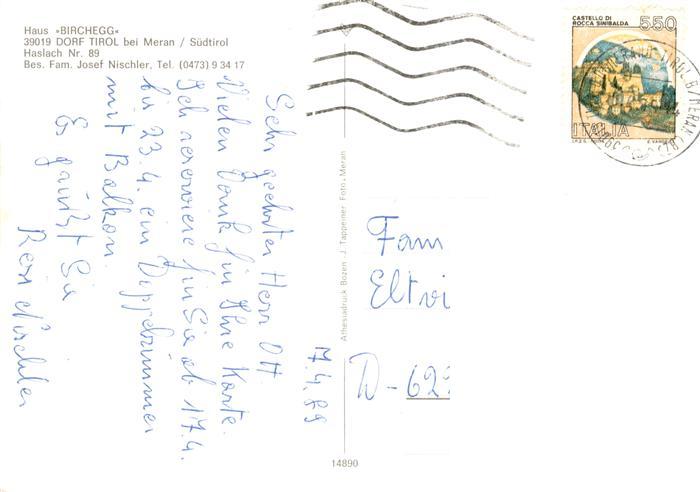 Haus »BIRCHEGG«
39019 DORF TIROL bei Meran / Südtirol
Haslach Nr. 89
Bes. Fam. Josef Nischler, Tel. (0473) 9 34 17
Sehr geehrter Herr Ott
Vielen Dank für Ihre Karte.
Ich reserviere für Sie ab 17.4.
bis 23.4. ein Doppelzimmer
mit Balkon.
Es grüßt Sie
Nischler
7.4.89
Athesiadruck Bozen J. Tappeiner Foto, Meran
14890
CASTELLO DI
ROCCA SINIBALDA
550
ITALIA
Fam
Eltvi
D-62